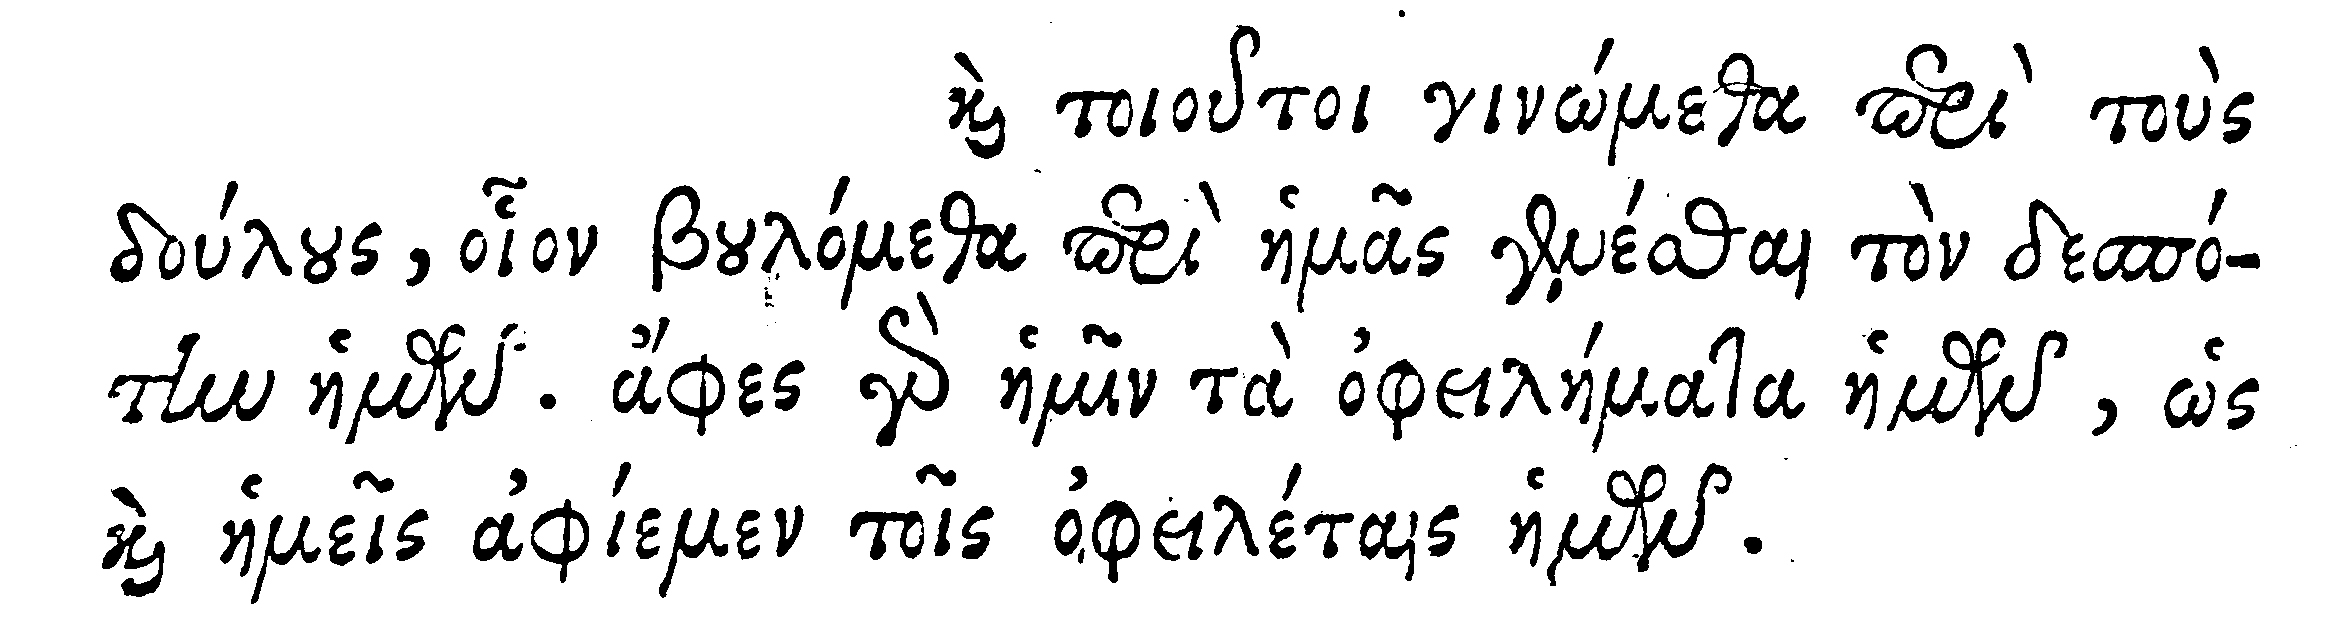 καὶ τοιοῦτοι γινώμεθα περὶ τοὺς
δούλους, οἷον βουλόμεθα περὶ ἡμᾶς γενέσθαι τὸν δεσπό-
την ἡμῶν. ἄφες γὰρ ἡμῖν τὰ ὀφειλήματα ἡμῶν, ὡς
καὶ ἡμεῖς ἀφίεμεν τοῖς ὀφειλέταις ἡμῶν.